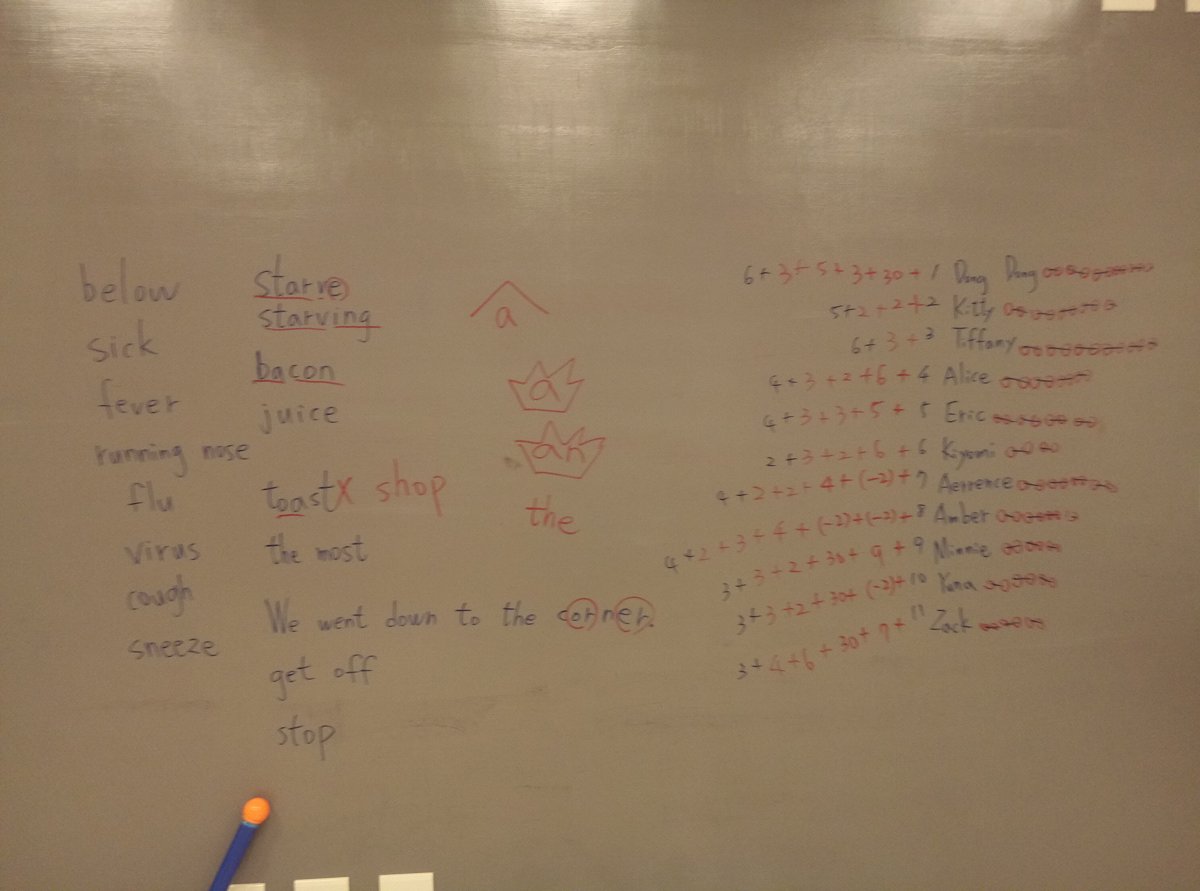 below
sick
fever
running nose
flu
virus
cough
sneeze
starve
starving
bacon
juice
toast X shop
the most
We went down to the corner.
get off
stop
a
a
an
the
6+3+5+3+30+1 Dong Dong
5+2+2+2 Kitty
6+3+3 Tiffany
4+3+2+6+4 Alice
4+3+3+5+5 Eric
2+3+2+6+6 Kiyomi
4+2+2+4+(-2)+7 Aerrence
4+2+3+4+(-2)+(-2)+8 Amber
3+3+2+30+9+9 Minnie
3+3+2+30+(-2)+10 Yuna
3+4+6+30+9+11 Zack